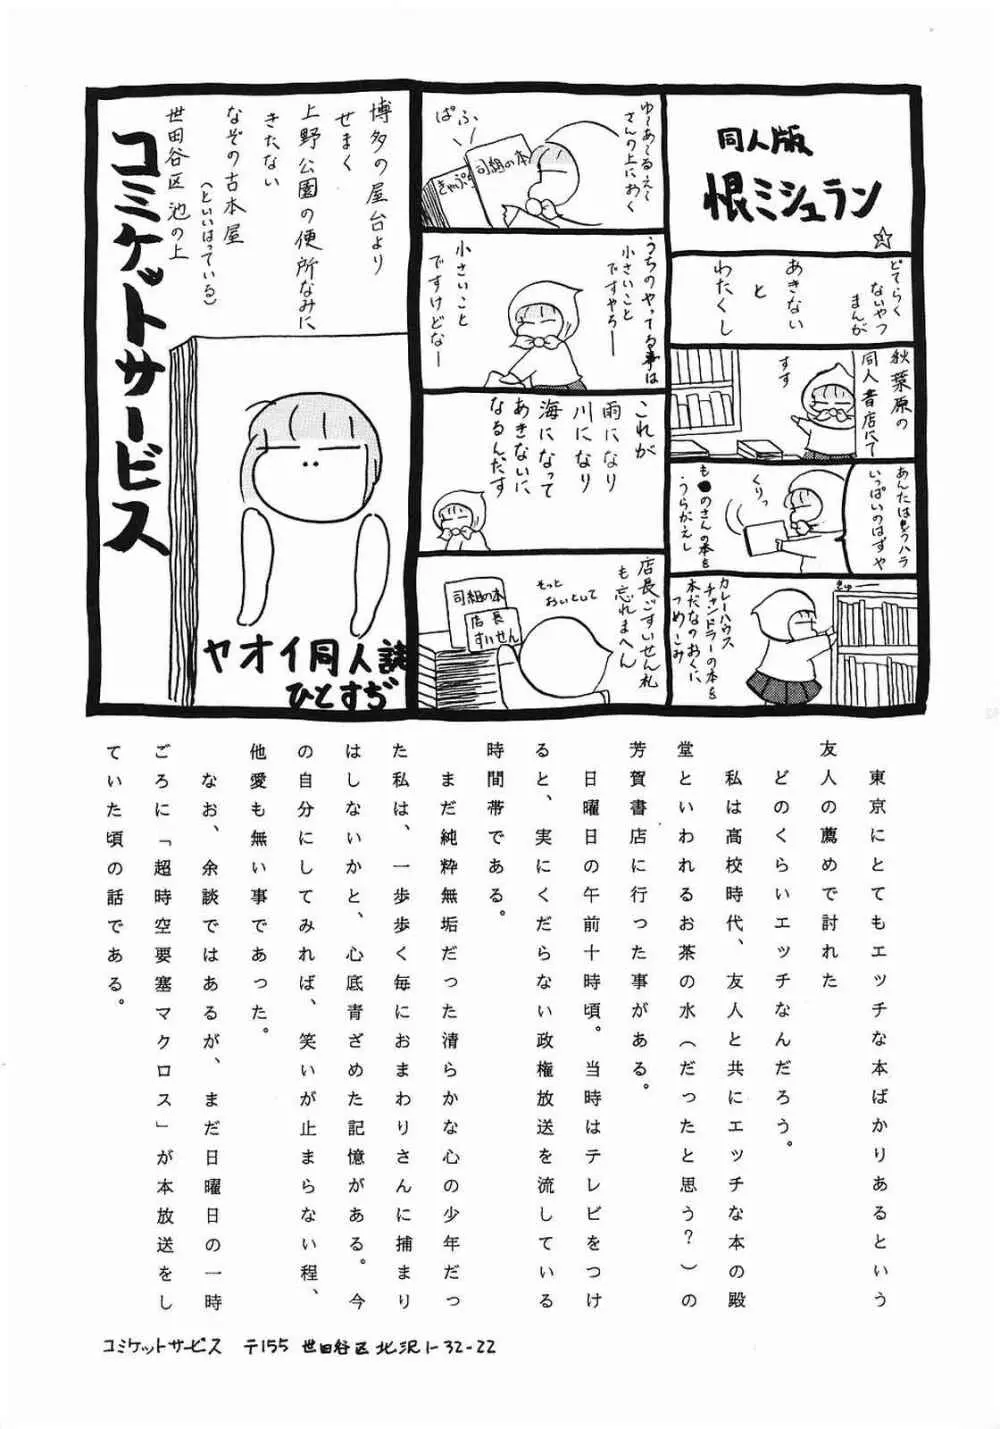 同人版
恨ミシュラン
どてらく
ないやつ
まんが
あきない
と
わたくし
秋葉原の
同人書店にて
すす
あんたは色うハラ
いっぱいのはずや
くりっ
も●のさんの本を
うらがえし
カレーハウス
チャンドラーの本を
本だなのおくに
つめこみ
ぎゅー
ゆ〜あ〜るえ〜
さんの上におく
ぱふ
司組の本
きゃぷ
うちのやってる事は
小さいこと
ですやろ——
小さいこと
ですけどな——
これが
雨になり
川になり
海になって
あきないに
なるんだす
店長ごすいせん札
も忘れまへん
そっと
おいとして
司組の本
店長
すいせん
博多の屋台より
せまく
上野公園の便所なみに
きたない
なぞの古本屋
(といいはっている)
世田谷区池の上
コミケットサービス
ヤオイ同人誌
ひとすぢ
東京にとてもエッチな本ばかりあるという
友人の薦めで討れた
どのくらいエッチなんだろう。
私は高校時代、友人と共にエッチな本の殿
堂といわれるお茶の水(だったと思う?)の
芳賀書店に行った事がある。
日曜日の午前十時頃。当時はテレビをつけ
ると、実にくだらない政権放送を流している
時間帯である。
まだ純粋無垢だった清らかな心の少年だっ
た私は、一歩歩く毎におまわりさんに捕まり
はしないかと、心底青ざめた記憶がある。今
の自分にしてみれば、笑いが止まらない程、
他愛も無い事であった。
なお、余談ではあるが、まだ日曜日の一時
ごろに「超時空要塞マクロス」が本放送をし
ていた頃の話である。
コミケットサービス 〒155 世田谷区北沢1-32-22